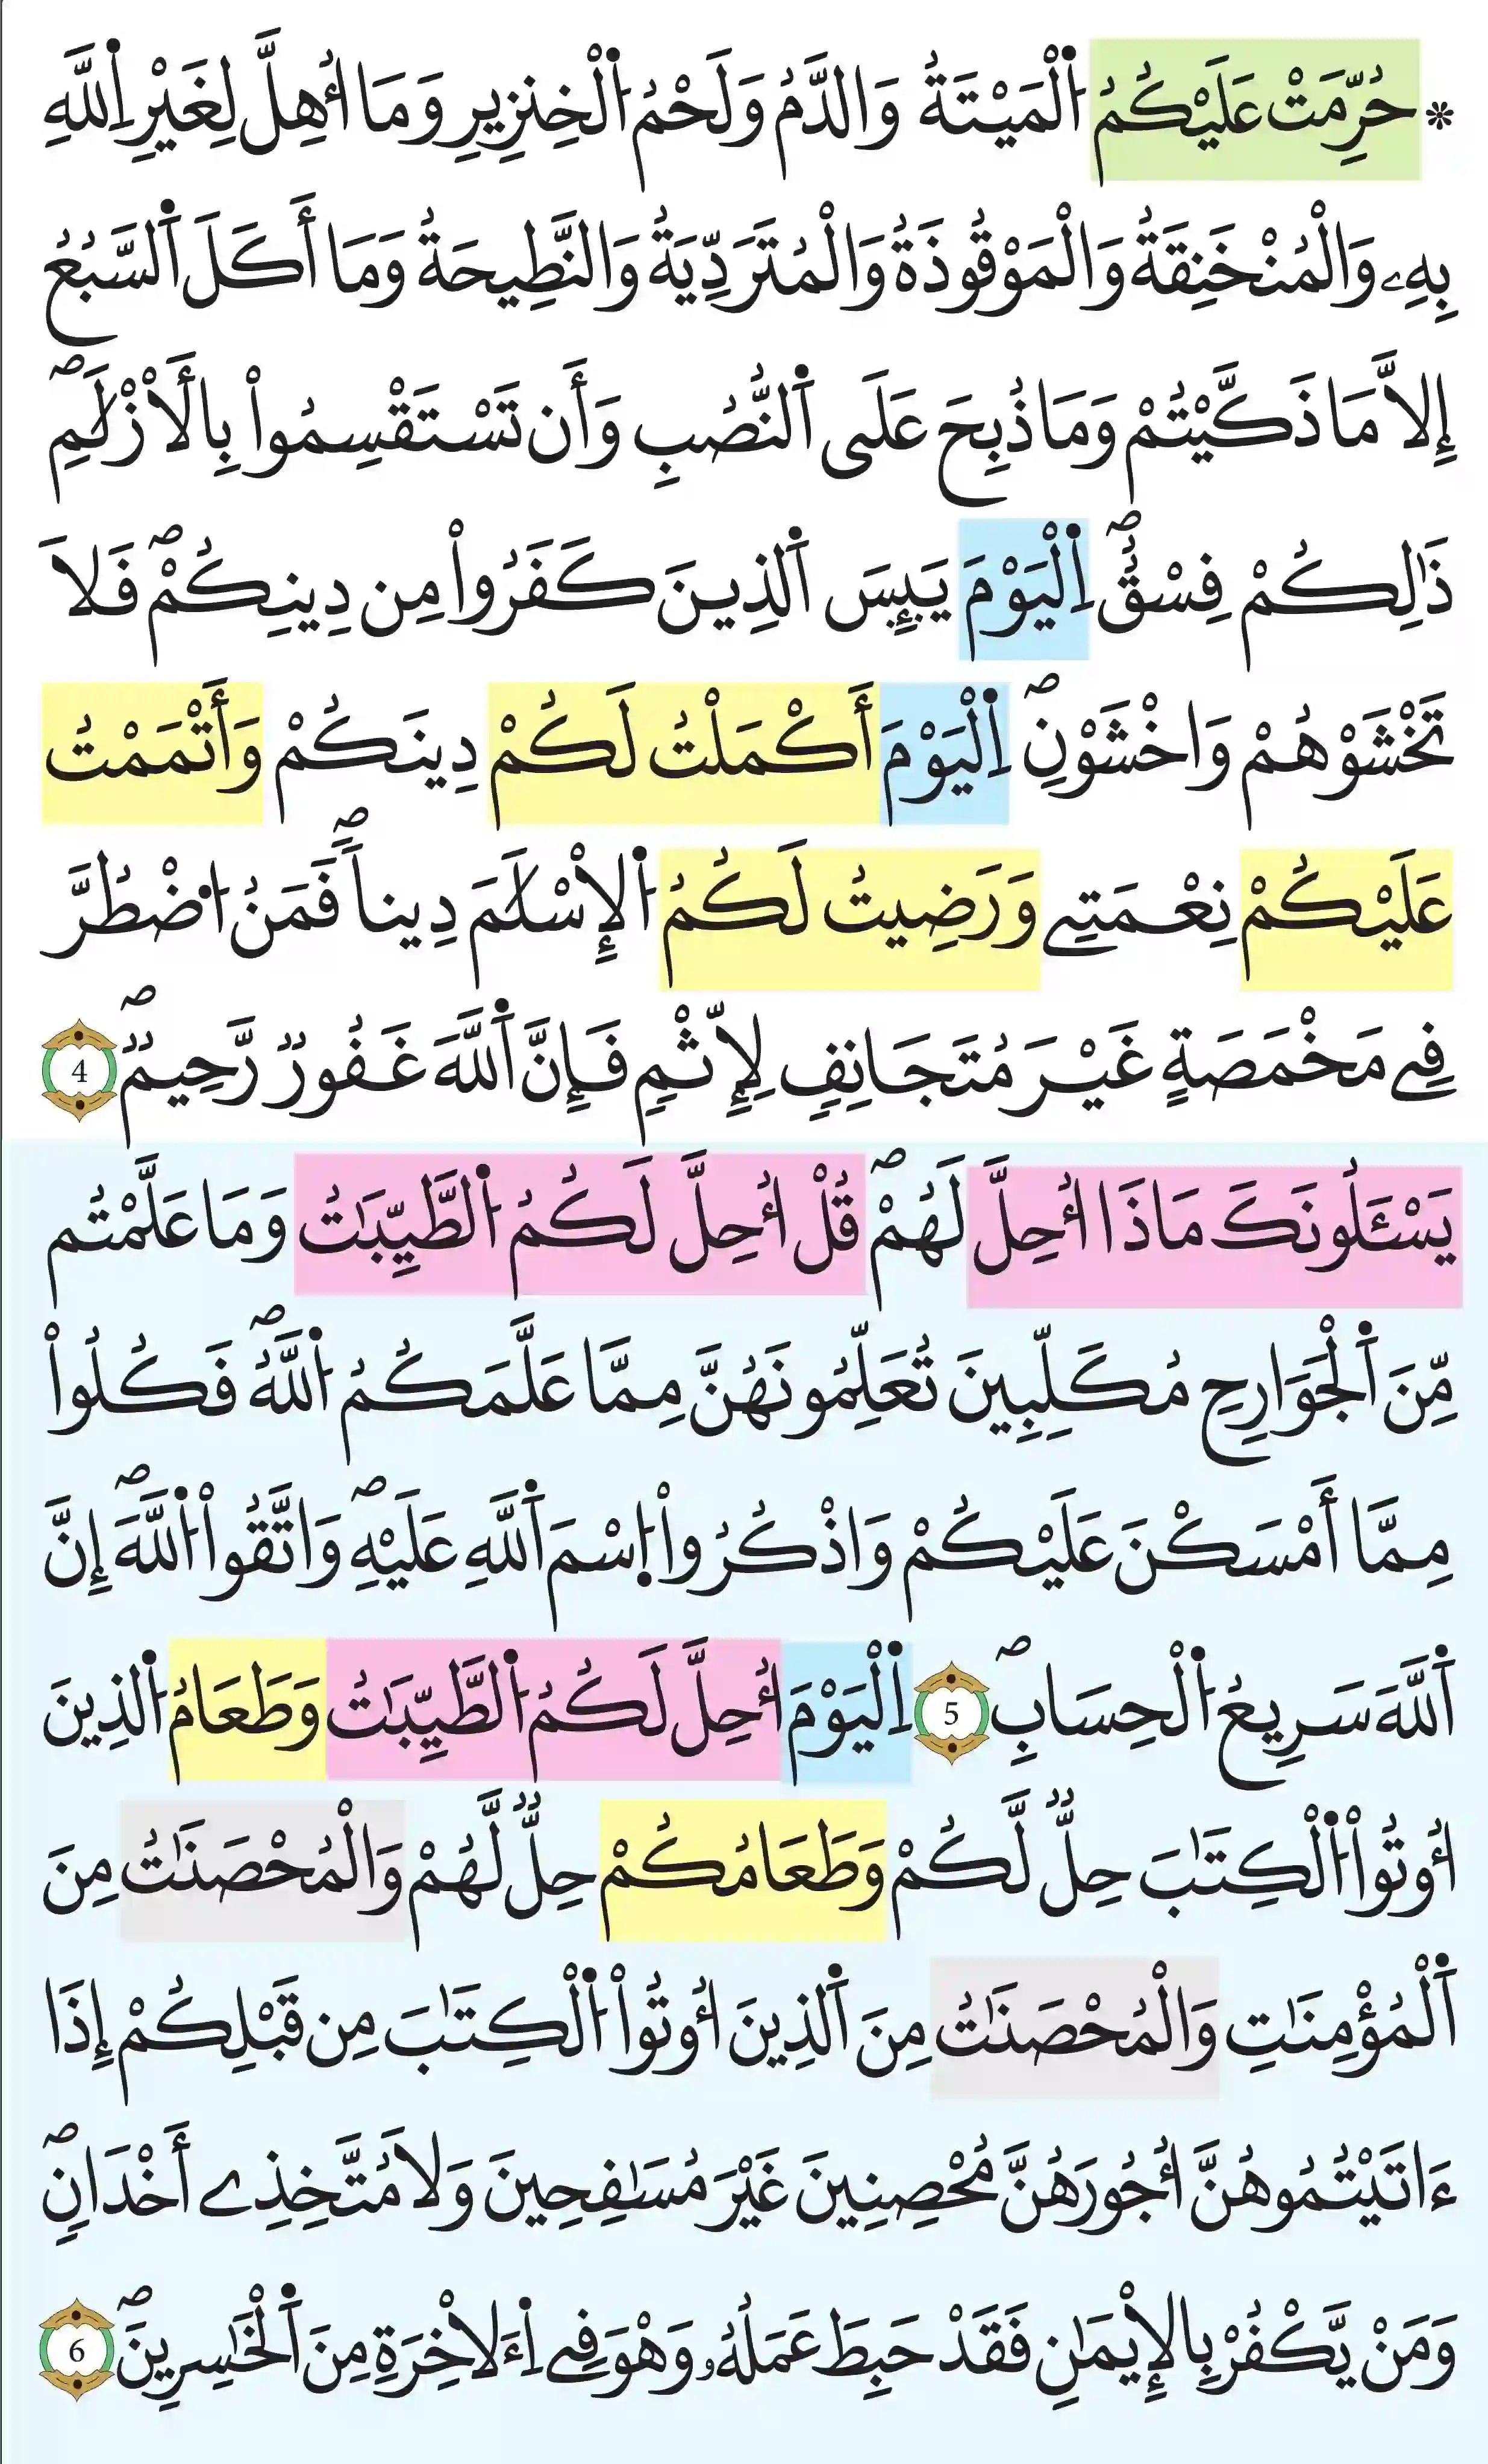 * حُرِّمَتْ عَلَيْكُمُ اُ۬لْمَيْتَةُ وَالدَّمُ وَلَحْمُ اُ۬لْخِنزِيرِ وَمَا أُهِلَّ لِغَيْرِ اِ۬للَّهِ
بِهِۦ وَالْمُنْخَنِقَةُ وَالْمَوْقُوذَةُ وَالْمُتَرَدِّيَةُ وَالنَّطِيحَةُ وَمَا أَكَلَ اَ۬لسَّبُعُ
إِلاَّ مَا ذَكَّيْتُمْ وَمَا ذُبِحَ عَلَى اَ۬لنُّصُبِ وَأَن تَسْتَقْسِمُواْ بِالْأَزْلَٰمِۖ
ذَٰلِكُمْ فِسْقٌۖ اِ۬لْيَوْمَ يَئِسَ اَ۬لذِينَ كَفَرُواْ مِن دِينِكُمْۖ فَلاَ
تَخْشَوْهُمْ وَاخْشَوْنِۖ اِ۬لْيَوْمَ أَكْمَلْتُ لَكُمْ دِينَكُمْ وَأَتْمَمْتُ
عَلَيْكُمْ نِعْمَتِے وَرَضِيتُ لَكُمُ اُ۬لْإِسْلَٰمَ دِيناًۖ فَمَنُ اُ۟ضْطُرَّ
فِے مَخْمَصَةٍ غَيْرَ مُتَجَانِفٍ لِإِثْمٍ فَإِنَّ اَ۬للَّهَ غَفُورٌ رَّحِيمٌۖ 4
يَسْـَٔلُونَكَ مَاذَا أُحِلَّ لَهُمْۖ قُلْ أُحِلَّ لَكُمُ اُ۬لطَّيِّبَٰتُ وَمَا عَلَّمْتُم
مِّنَ اَ۬لْجَوَارِحِ مُكَلِّبِينَ تُعَلِّمُونَهُنَّ مِمَّا عَلَّمَكُمُ اُ۬للَّهُۖ فَكُلُواْ
مِمَّا أَمْسَكْنَ عَلَيْكُمْ وَاذْكُرُواْ اُ۪سْمَ اَ۬للَّهِ عَلَيْهِۖ وَاتَّقُواْ اُ۬للَّهَۖ إِنَّ
اَ۬للَّهَ سَرِيعُ اُ۬لْحِسَابِۖ 5 اِ۬لْيَوْمَ أُحِلَّ لَكُمُ اُ۬لطَّيِّبَٰتُ وَطَعَامُ اُ۬لذِينَ
أُوتُواْ اُ۬لْكِتَٰبَ حِلٌّ لَّكُمْ وَطَعَامُكُمْ حِلٌّ لَّهُمْ وَالْمُحْصَنَٰتُ مِنَ
اَ۬لْمُؤْمِنَٰتِ وَالْمُحْصَنَٰتُ مِنَ اَ۬لذِينَ أُوتُواْ اُ۬لْكِتَٰبَ مِن قَبْلِكُمْ إِذَا
ءَاتَيْتُمُوهُنَّ أُجُورَهُنَّ مُحْصِنِينَ غَيْرَ مُسَٰفِحِينَ وَلاَ مُتَّخِذِے أَخْدَانٍۖ
وَمَنْ يَّكْفُرْ بِالْإِيمَٰنِ فَقَدْ حَبِطَ عَمَلُهُۥ وَهْوَ فِے اِ۬ءَلْاخِرَةِ مِنَ اَ۬لْخَٰسِرِينَۖ 6